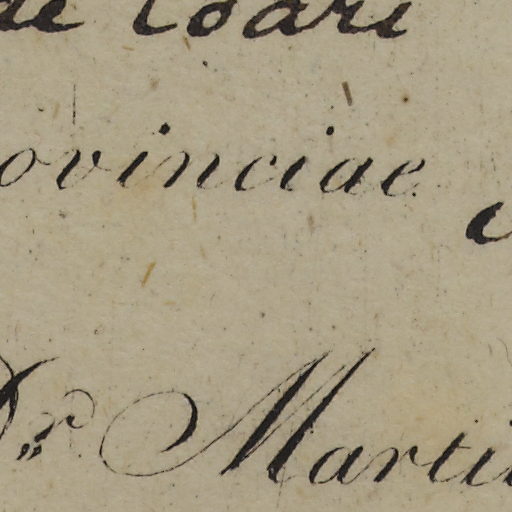 de Coari
ovinciae
Dr. Marti